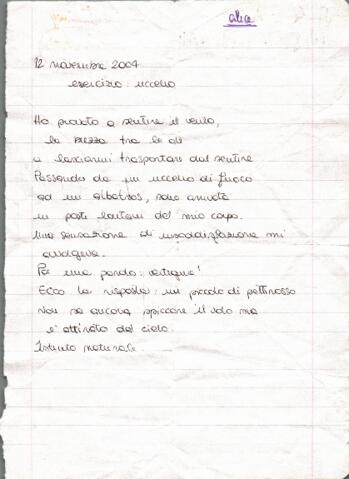 alice
12 novembre 2004
esercizio: uccello
Ho provato a sentire il vento,
la brezza tra le ali
a lasciarmi trasportare dal sentire
Passando da un uccello di fuoco
ad un albatros, sono arrivata
in posti lontani del mio corpo.
Una sensazione di insoddisfazione mi
avvolgeva.
Poi una parola: vertigine!
Ecco la risposta: un piccolo di pettirosso
Non sa ancora spiccare il volo ma
e' attirato dal cielo.
Istinto naturale.